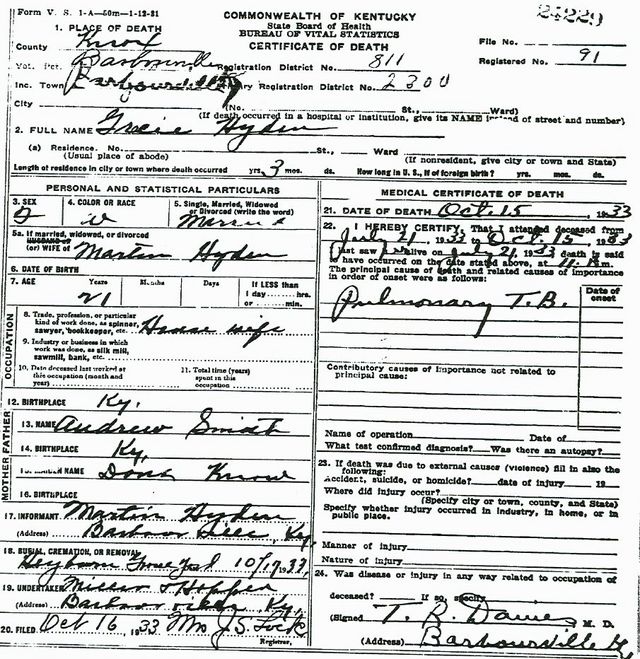 Form V. S. 1-A-50m-1-12-31
24229
COMMONWEALTH OF KENTUCKY
State Board of Health
BUREAU OF VITAL STATISTICS
CERTIFICATE OF DEATH
1. PLACE OF DEATH
County Knox
File No.
Registered No. 91
Vot. Pct. Barbourville Registration District No. 811
Inc. Town Barbourville Registration District No. 2300
City (No. St., Ward)
(If death occurred in a hospital or institution, give its NAME instead of street and number)
2. FULL NAME Gracie Hyden
(a) Residence. No. St., Ward
(Usual place of abode) (If nonresident, give city or town and State)
Length of residence in city or town where death occurred yrs. 3 mos. ds. How long in U. S., if of foreign birth? yrs. mos. ds.
PERSONAL AND STATISTICAL PARTICULARS
3. SEX
4. COLOR OR RACE
5. Single, Married, Widowed
or Divorced (write the word)
F W Married
5a. If married, widowed, or divorced
HUSBAND OF
(or) WIFE of Martin Hyden
6. DATE OF BIRTH
7. AGE Years Months Days If LESS than
1 day hrs.
or min.
21
OCCUPATION
8. Trade, profession, or particular
kind of work done, as spinner,
sawyer, bookkeeper, etc. House wife
9. Industry or business in which
work was done, as silk mill,
sawmill, bank, etc.
10. Date deceased last worked at
this occupation (month and
year)
11. Total time (years)
spent in this
occupation
12. BIRTHPLACE Ky.
FATHER
13. NAME Andrew Smith
14. BIRTHPLACE Ky.
MOTHER
15. MAIDEN NAME Dont Know
16. BIRTHPLACE
17. INFORMANT Martin Hyden
(Address) Barbourville, Ky.
18. BURIAL, CREMATION, OR REMOVAL
10/17 1933
19. UNDERTAKER
(Address) Barbourville Ky.
20. FILED Oct 16, 1933 Mrs J. S. Lock
Registrar.
MEDICAL CERTIFICATE OF DEATH
21. DATE OF DEATH Oct. 15, 1933
22. I HEREBY CERTIFY, That I attended deceased from
July 21, 1933 to Oct. 15, 1933
I last saw alive on July 21, 1933 death is said
to have occurred on the date stated above, at m.
The principal cause of death and related causes of importance
in order of onset were as follows:
Date of
onset
Pulmonary T.B.
Contributory causes of importance not related to
principal cause:
Name of operation Date of
What test confirmed diagnosis? Was there an autopsy?
23. If death was due to external causes (violence) fill in also the
following:
Accident, suicide, or homicide? date of injury 19
Where did injury occur?
(Specify city or town, county, and State)
Specify whether injury occurred in industry, in home, or in
public place.
Manner of injury
Nature of injury
24. Was disease or injury in any way related to occupation of
deceased? If so, specify
(Signed T. R. Davies M. D.
(Address) Barbourville Ky.